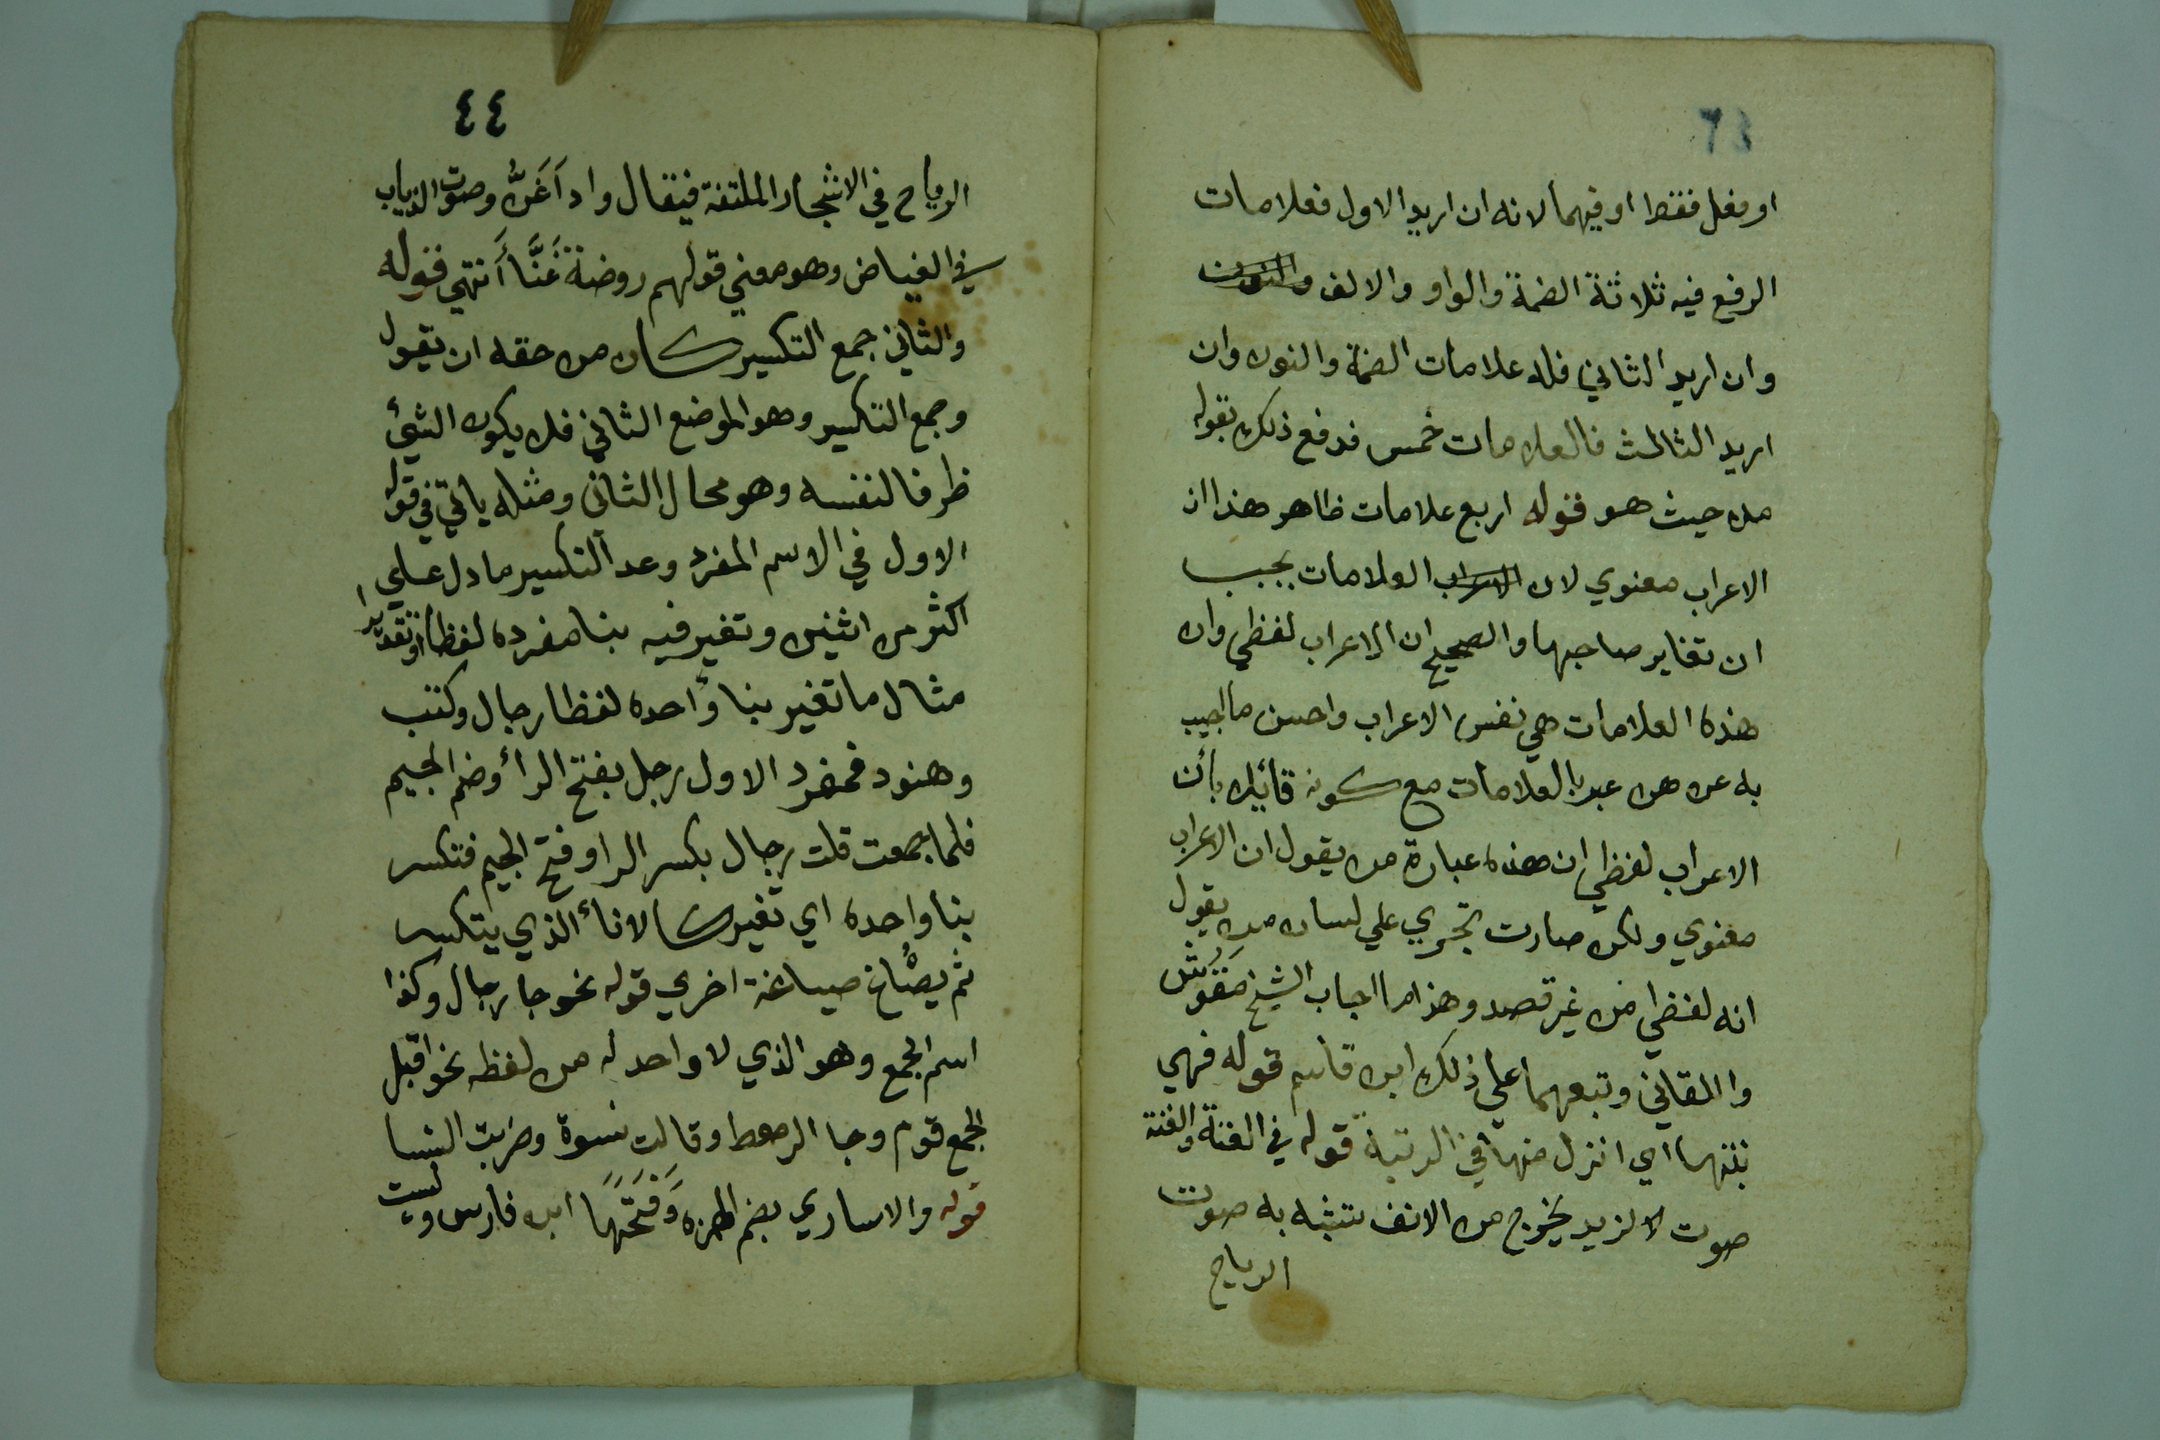 او فعل فقط او فيهما لانه ان اريد الاول فعلامات
الرفع فيه ثلاثة الضمة والواو والالف والنون
وان اريد الثاني فله علامات الضمة والنون وان
اريد الثالث فالعلامات خمس فدفع ذلك بقوله
من حيث هو قوله اربع علامات ظاهر هذا ان
الاعراب معنوي لان الاعراب العلامات يجب
ان تغاير صاحبها والصحيح ان الاعراب لفظي وان
هذه العلامات هي نفس الاعراب واحسن ما اجيب
به عن من عبر بالعلامات مع كونه قائلا بأن
الاعراب لفظي ان هذه عبارة من يقول ان الاعراب
معنوي ولكن صارت تجري علي لسان من يقول
انه لفظي من غير قصد وهذا ما اجاب الشيخ مَقُّوش
واللقاني وتبعهما علي ذلك ابن قاسم قوله فهي
بنتها اي انزل منها في الرتبة قوله في الغنة والغنة
صوت لا لزيد يخرج من الانف يشبه به صوت
الرياح
٤٤
الرياح في الاشجار الملتفة فيقال واد اَغَنُّ وصوت الذباب
في الغياض وهو معني قولهم روضة غَنَّاأ انتهي قوله
والثاني جمع التكسير كان من حقه ان تقول
وجمع التكسير وهو الموضع الثاني فلا يكون الشيئ
ظرفا لنفسه وهو محال الثاني ومثله ياتي في قوله
الاول في الاسم المفرد وعد التكسير ما دل علي
اكثر من اثنين وتغير فيه بنا مفرده لفظا او تقديرا
مثال ما تغير بنأ واحده لفظا رجال وكتب
وهنود فمفرد الاول رجل بفتح الرأ وضم الجيم
فلما جمعت قلت رجال بكسر الرا وفتح الجيم فتكسر
بنا واحده اي تغير كالانأ الذي يتكسر
ثم يصُاغ صياغة اخري قوله نحو جا رجال وكذا
اسم الجمع وهو الذي لا واحد له من لفظه نحو اقبل
الجمع قوم وجا الرهط وقالت نسوة وضربت النسا
قوله والاساري بضم الهمزه وَفَتحَهَا ابن فارس وليست